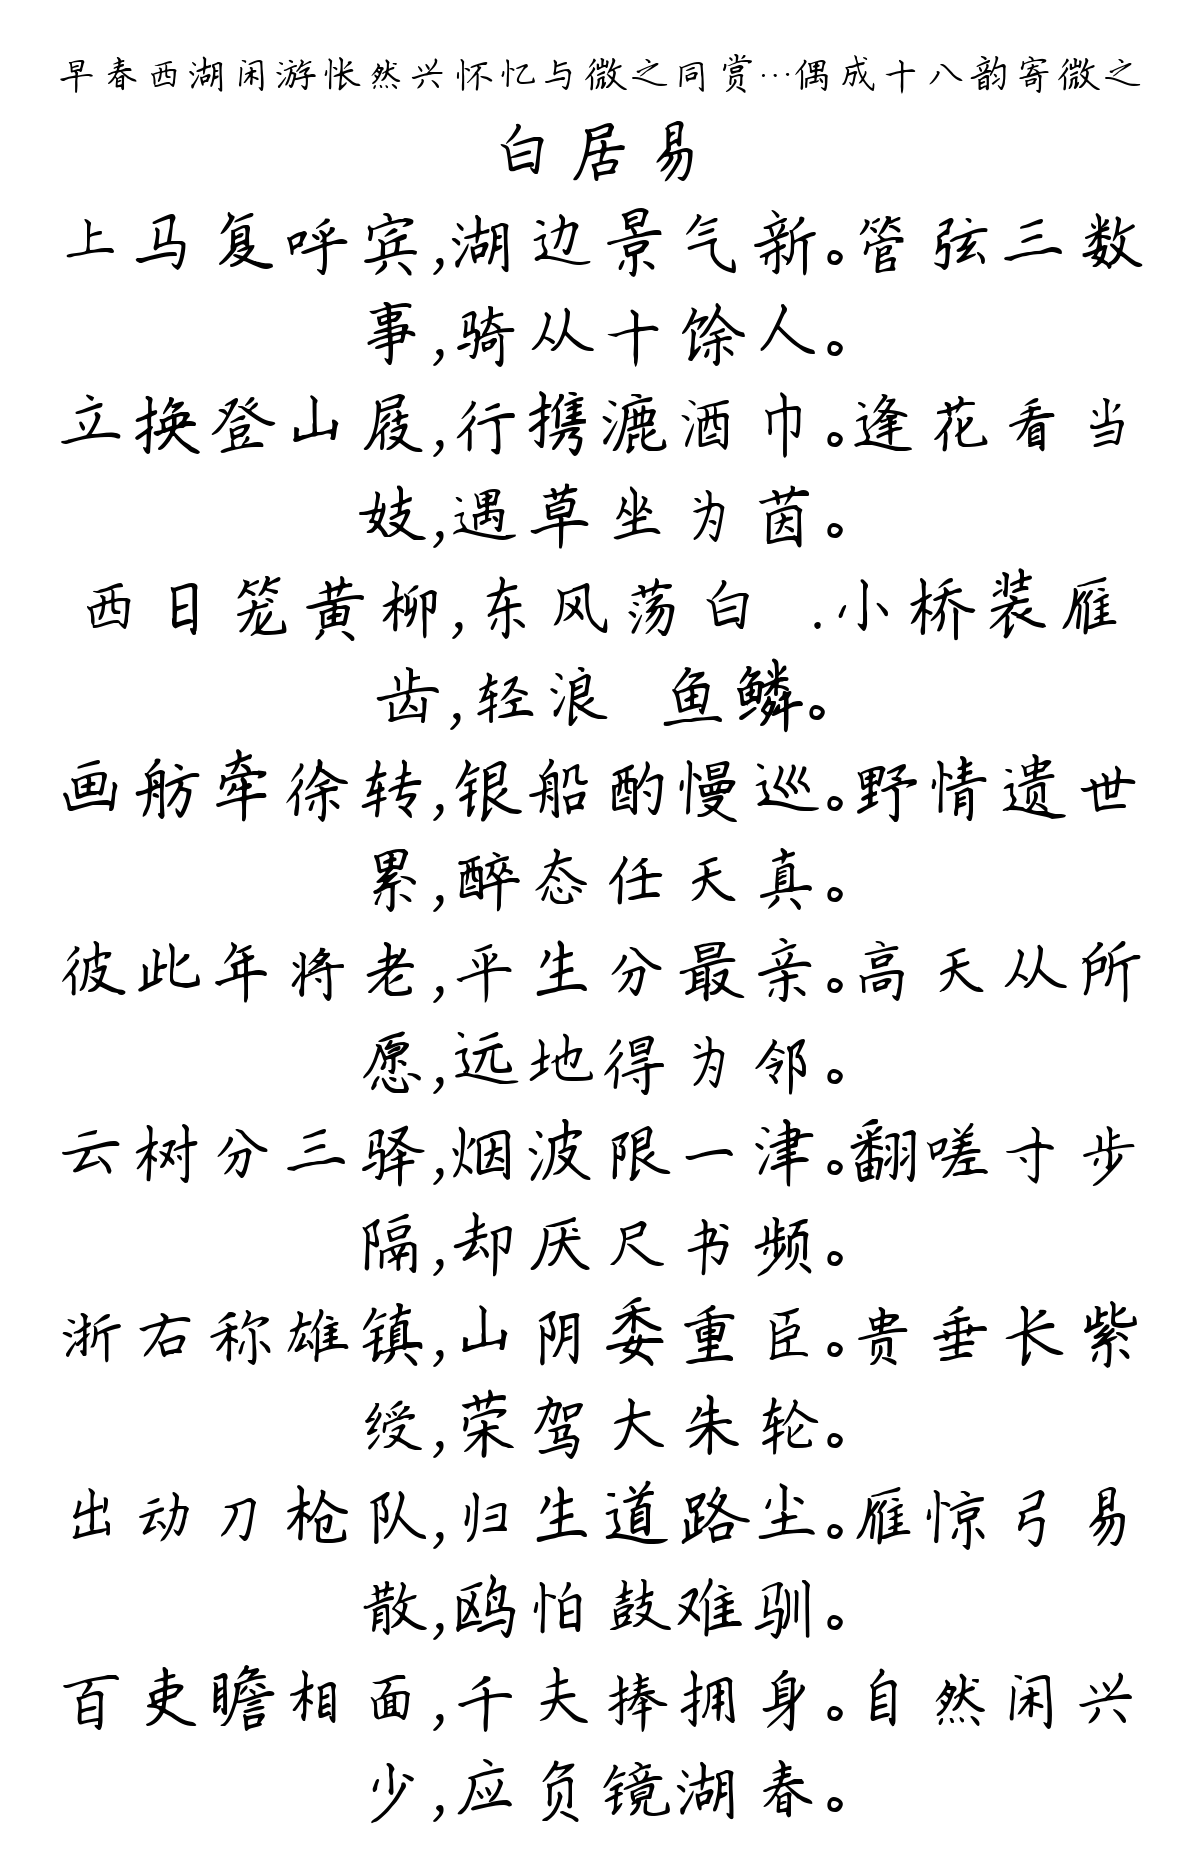 早春西湖闲游怅然兴怀忆与微之同赏…偶成十八韵寄微之
白居易
上马复呼宾,湖边景气新。管弦三数
事,骑从十馀人。
立换登山屐,行携漉酒巾。逢花看当
妓,遇草坐为茵。
西日笼黄柳,东风荡白 .小桥装雁
齿,轻浪 鱼鳞。
画舫牵徐转,银船酌慢巡。野情遗世
累,醉态任天真。
彼此年将老,平生分最亲。高天从所
愿,远地得为邻。
云树分三驿,烟波限一津。翻嗟寸步
隔,却厌尺书频。
浙右称雄镇,山阴委重臣。贵垂长紫
绶,荣驾大朱轮。
出动刀枪队,归生道路尘。雁惊弓易
散,鸥怕鼓难驯。
百吏瞻相面,千夫捧拥身。自然闲兴
少,应负镜湖春。